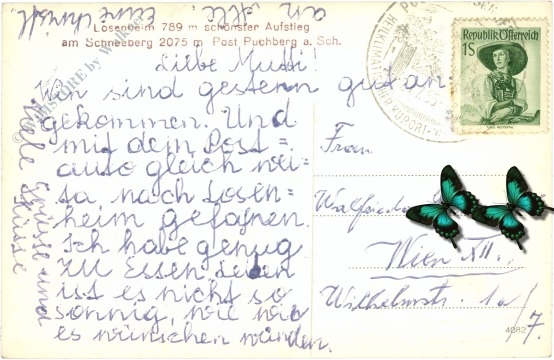 Losenheim 789 m schönster Aufstieg
am Schneeberg 2075 m Post Puchberg a. Sch.
Liebe Mutti!
Wir sind gestern gut an
gekommen. Und
mit dem Post=
auto gleich wei-
ta nach Losen=
heim gefahren.
Ich habe genug
zu Essen. Leider
ist es nicht so
sonnig, wie wir
es wünschen würden.
Viele Grüsse und
Küsse
an Alle. Eure
Frau
Wien XII.,
Wilhelmstr. 1a/7.
4082
Republik Österreich
1S